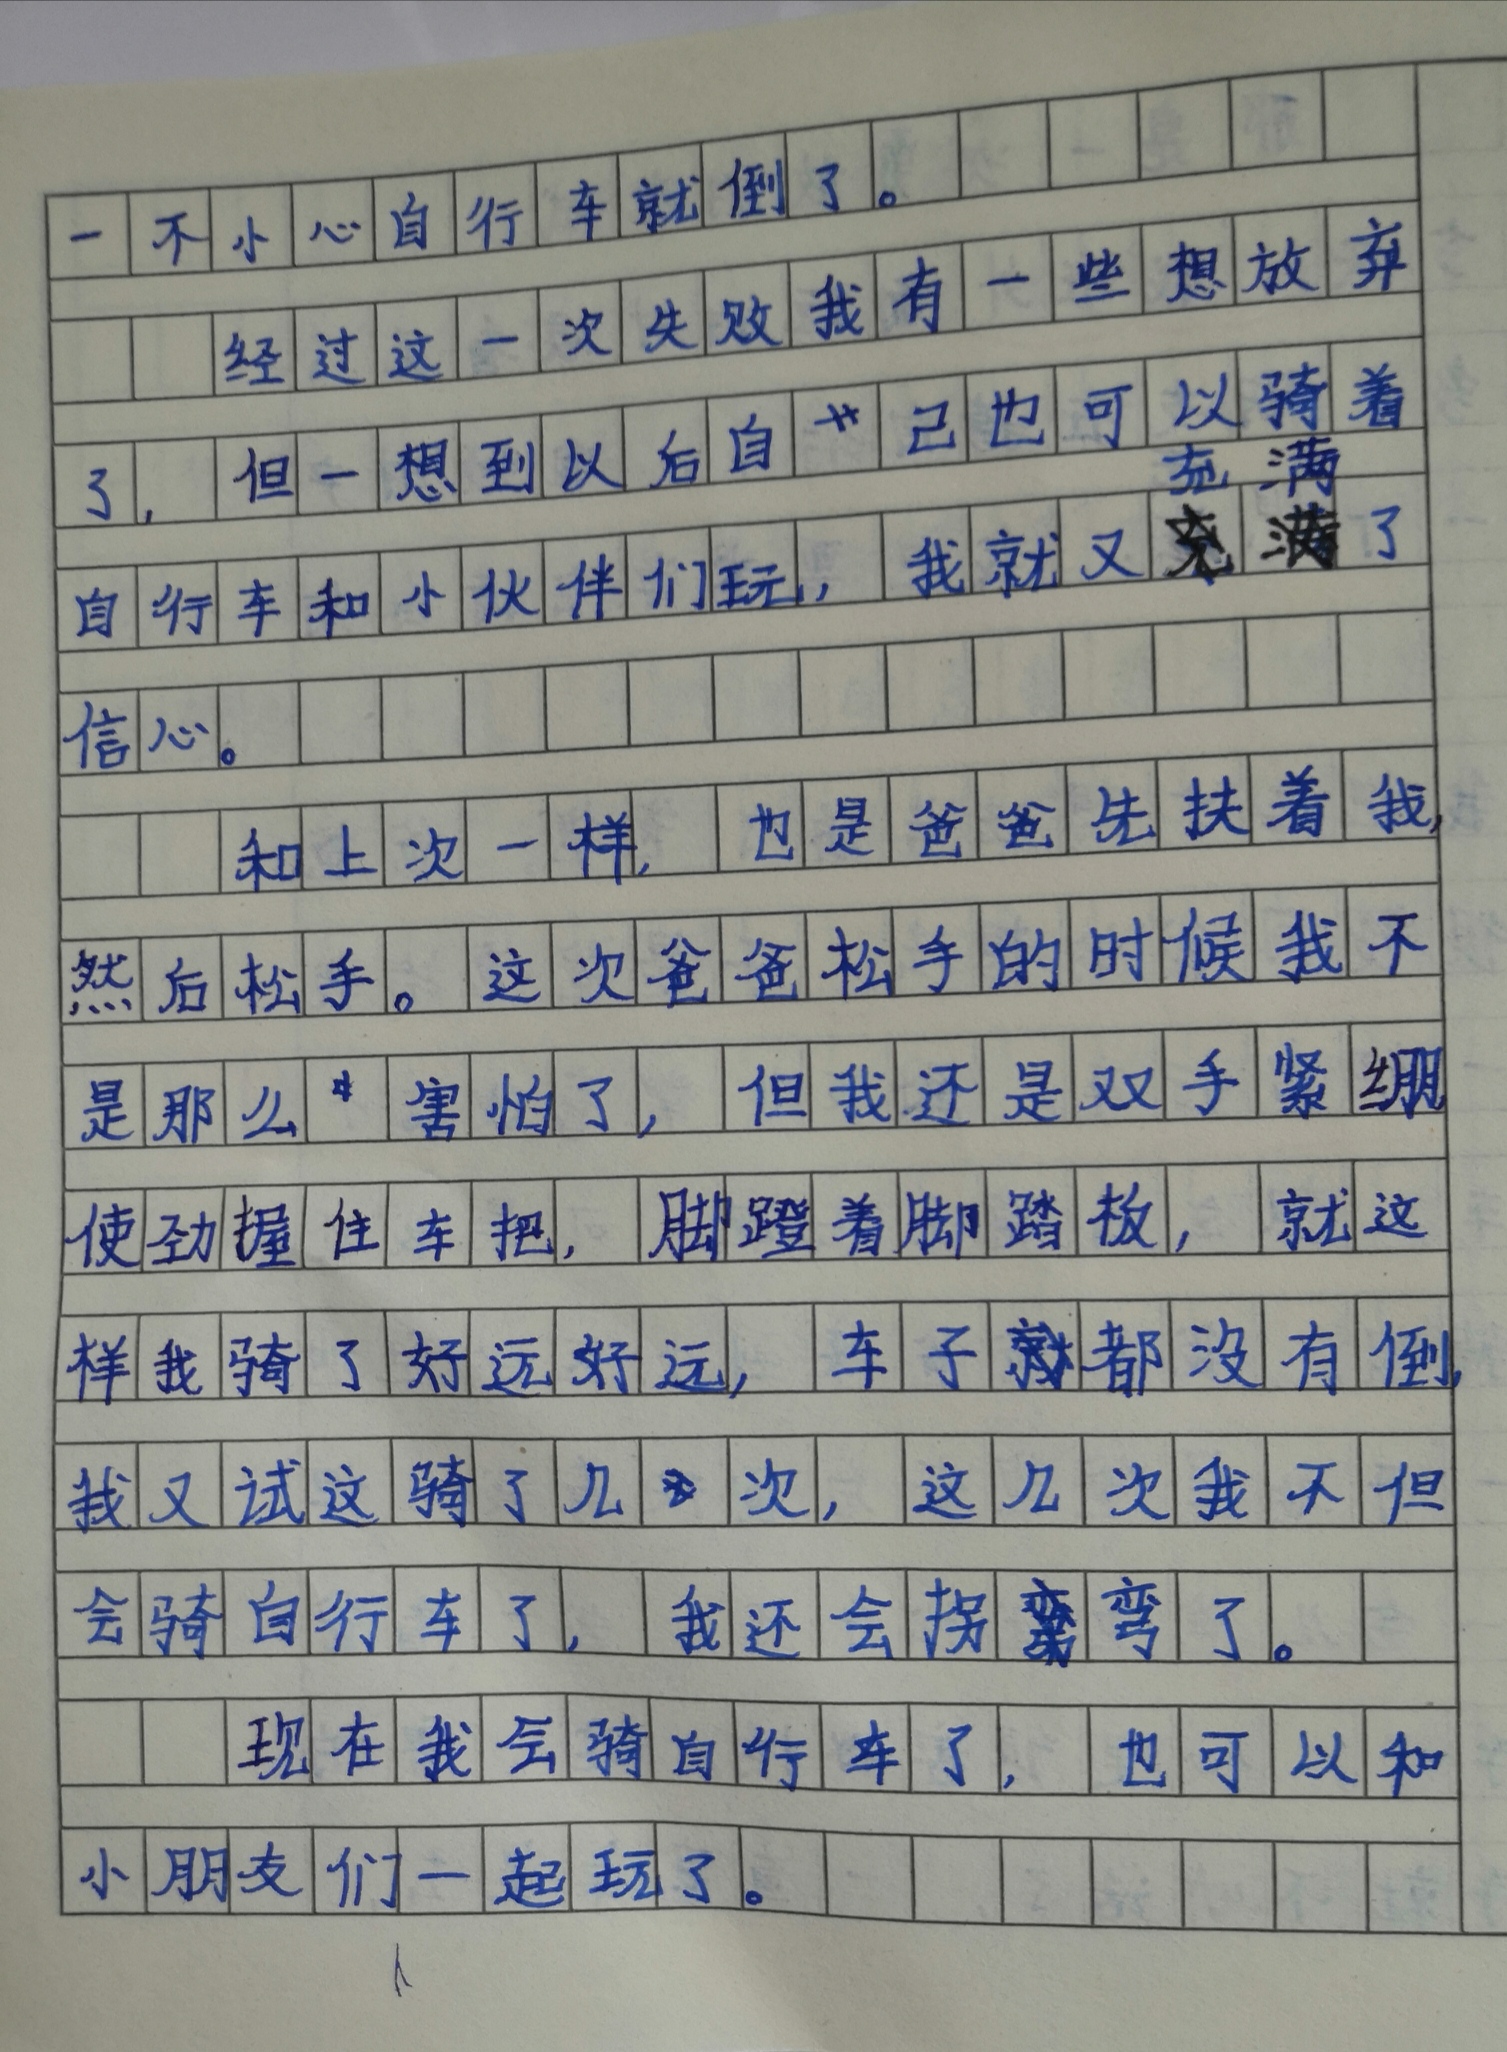 一不小心自行车就倒了。
经过这一次失败我有一些想放弃
了，但一想到以后自己也可以骑着
自行车和小伙伴们玩，我就又充满了
信心。
和上次一样，也是爸爸先扶着我，
然后松手。这次爸爸松手的时候我不
是那么害怕了，但我还是双手紧绷
使劲握住车把，脚蹬着脚踏板，就这
样我骑了好远好远，车子都没有倒，
我又试这骑了几次，这几次我不但
会骑自行车了，我还会拐弯了。
现在我会骑自行车了，也可以和
小朋友们一起玩了。